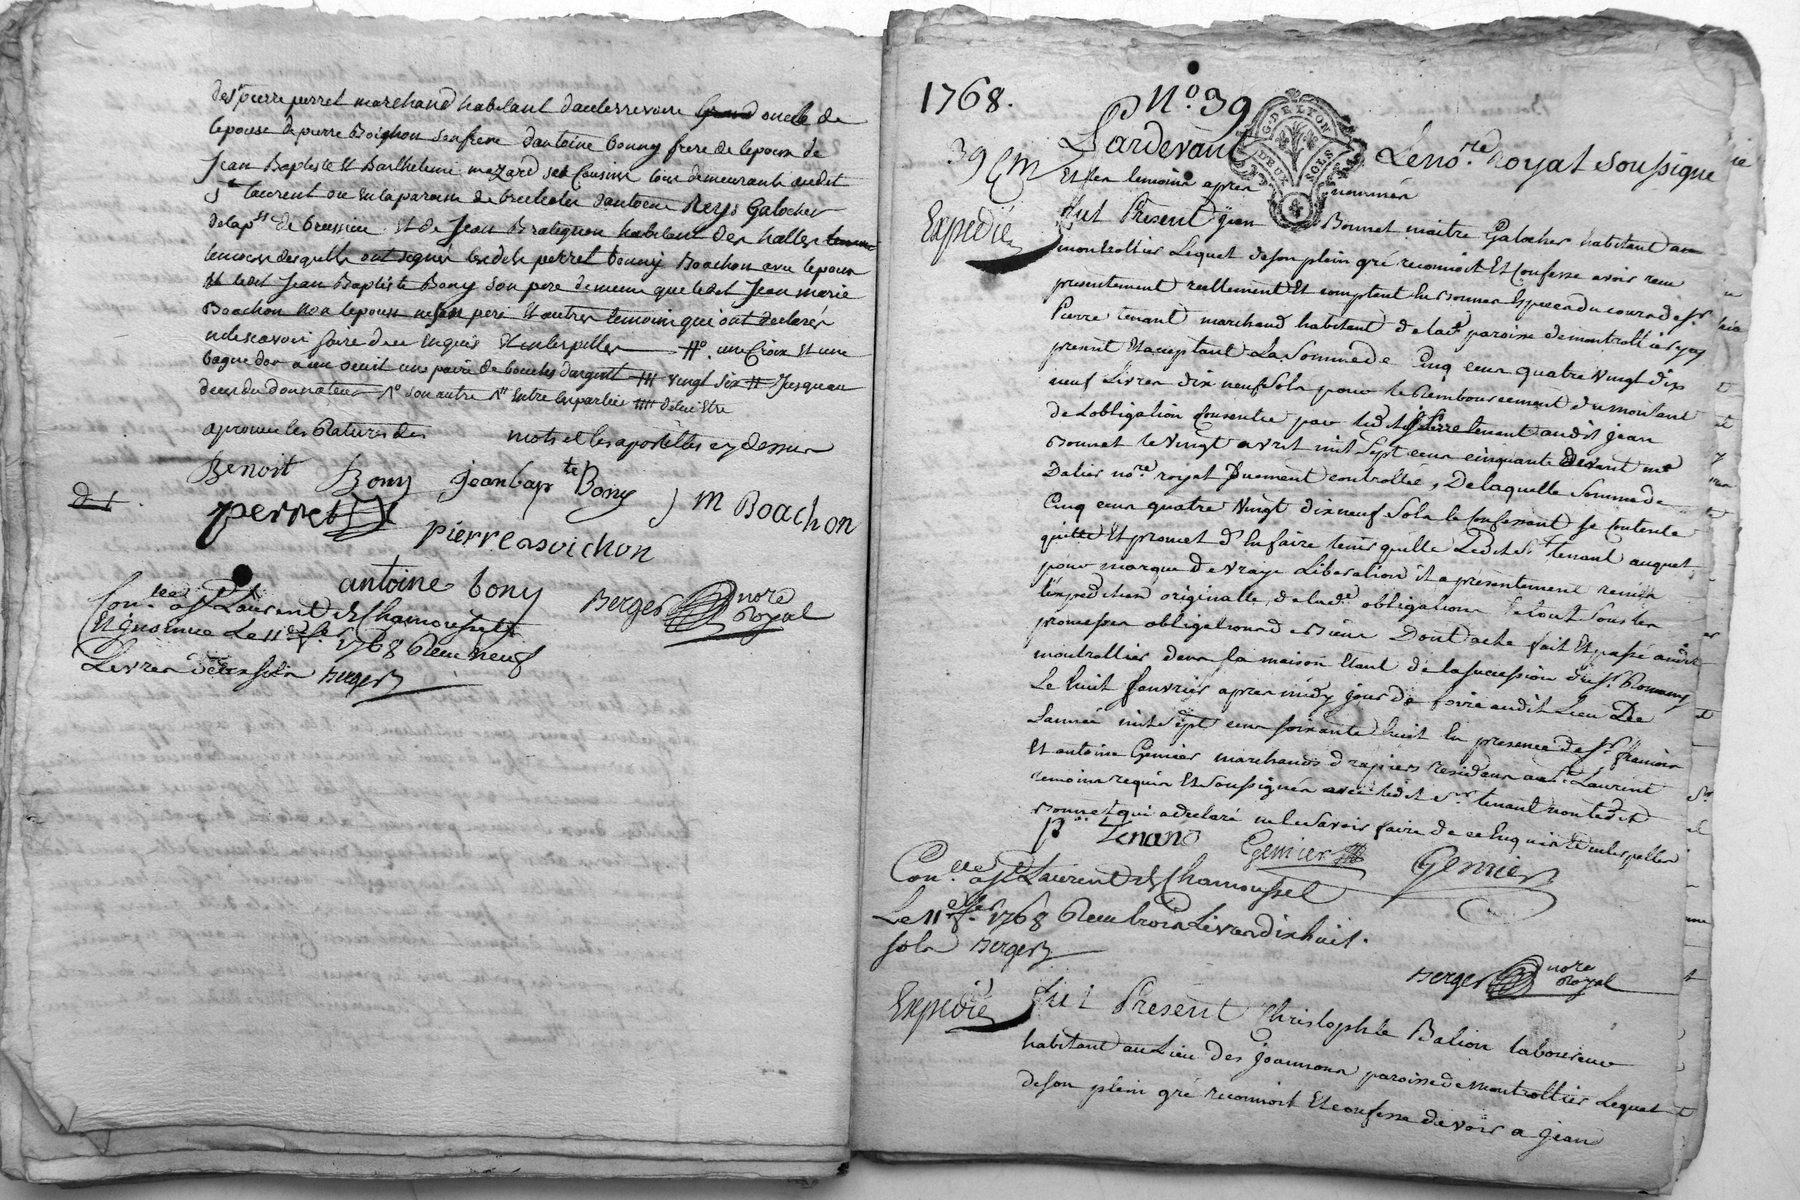 de Sr pierre perret marchand habitant dauterrevoire grand oncle de
lepouse de pierre Boichon son frere dantoine bonny frere de lepoux de
Jean Baptiste et Barthelemi mazard ses Cousins tous demeurants audit
St laurent ou en la paroisse de dantoine Reys Galocher
de la psse de brussieu et de Jean Bratignon habitant des halles
lecture desquels ont signés lesdits perret bonny Boachon avec lepoux
et ledit Jean Baptiste Bony son pere de meme que ledit Jean marie
Boachon non lepouse ni son pere et autres temoins qui ont declarés
ne le scavoir faire de ce enquis et interpellés une Croix et une
bague dor a un oeuil une paire de boucles dargent vingt six jusquau
deces du donnateur son autre entre les parties
aprouvé les Ratures des mots et les apostilles cy dessus
Benoit Bony jeanbapte Bony J M Boachon
perret pierre boichon
antoine bony
Berger nore Royal
Conllee a St Laurent de Chamousset
et insinué Le 11e fer 1768 Receu neuf
Livres sols Berger
1768. No. 39
G. DE LYON DEUX SOLS
39
Pardevant Le nore Royal soussigné
et les temoins apres nommés
Expedié
fut Present jean Bonnet maitre Galocher habitant au
montrottier Lequel de son plein gré reconnoit et Confesse avoir receu
presentement réellement et comptant en bonnes espèces du cours de Sr
Pierre tenant marchand habitant de lad. paroisse de montrottier icy
present et aceptant La Somme de Cinq cens quatre vingt dix
neuf Livres dix neuf sols pour le Remboursement du montant
de Lobligation Consentie par ledit Pierre tenant audit jean
Bonnet le vingt avril mil sept cens cinquante devant me
Dalier nore royal duement controllée, De laquelle somme de
Cinq cens quatre vingt dix neuf sols le Confessant se Contente
quitte et promet d'en faire tenir quitte Ledit Sr tenant auquel
pour marque de vraye Liberation il a presentement remis
Lexpedition originalle de lade obligation le tout sous les
promesses obligations de Biens Dont acte fait et passé audit
montrottier dans la maison etant de la succession du Sr Romany
Le huit fevrier apres midy jour de foire audit Lieu De
Lannée mil sept cens soixante huit En presence de Sr françois
et antoine Gemier marchands drapiers residans audit St Laurent
temoins requis et soussignés avec ledit Sr tenant non ledit
Bonnet qui a declaré ne le Savoir faire de ce Enquis et interpellé
p. Tenand Gemier Gemier
Conllee a St Laurent de Chamousset
Le 11e fer 1768 Receu trois Livres dix huit
sols Berger
Berger nore Royal
Expedié
fut Present Christophle Balion laboureur
habitant au Lieu des joannons paroisse de montrottier Lequel
de son plein gré reconnoit et confesse devoir a jean